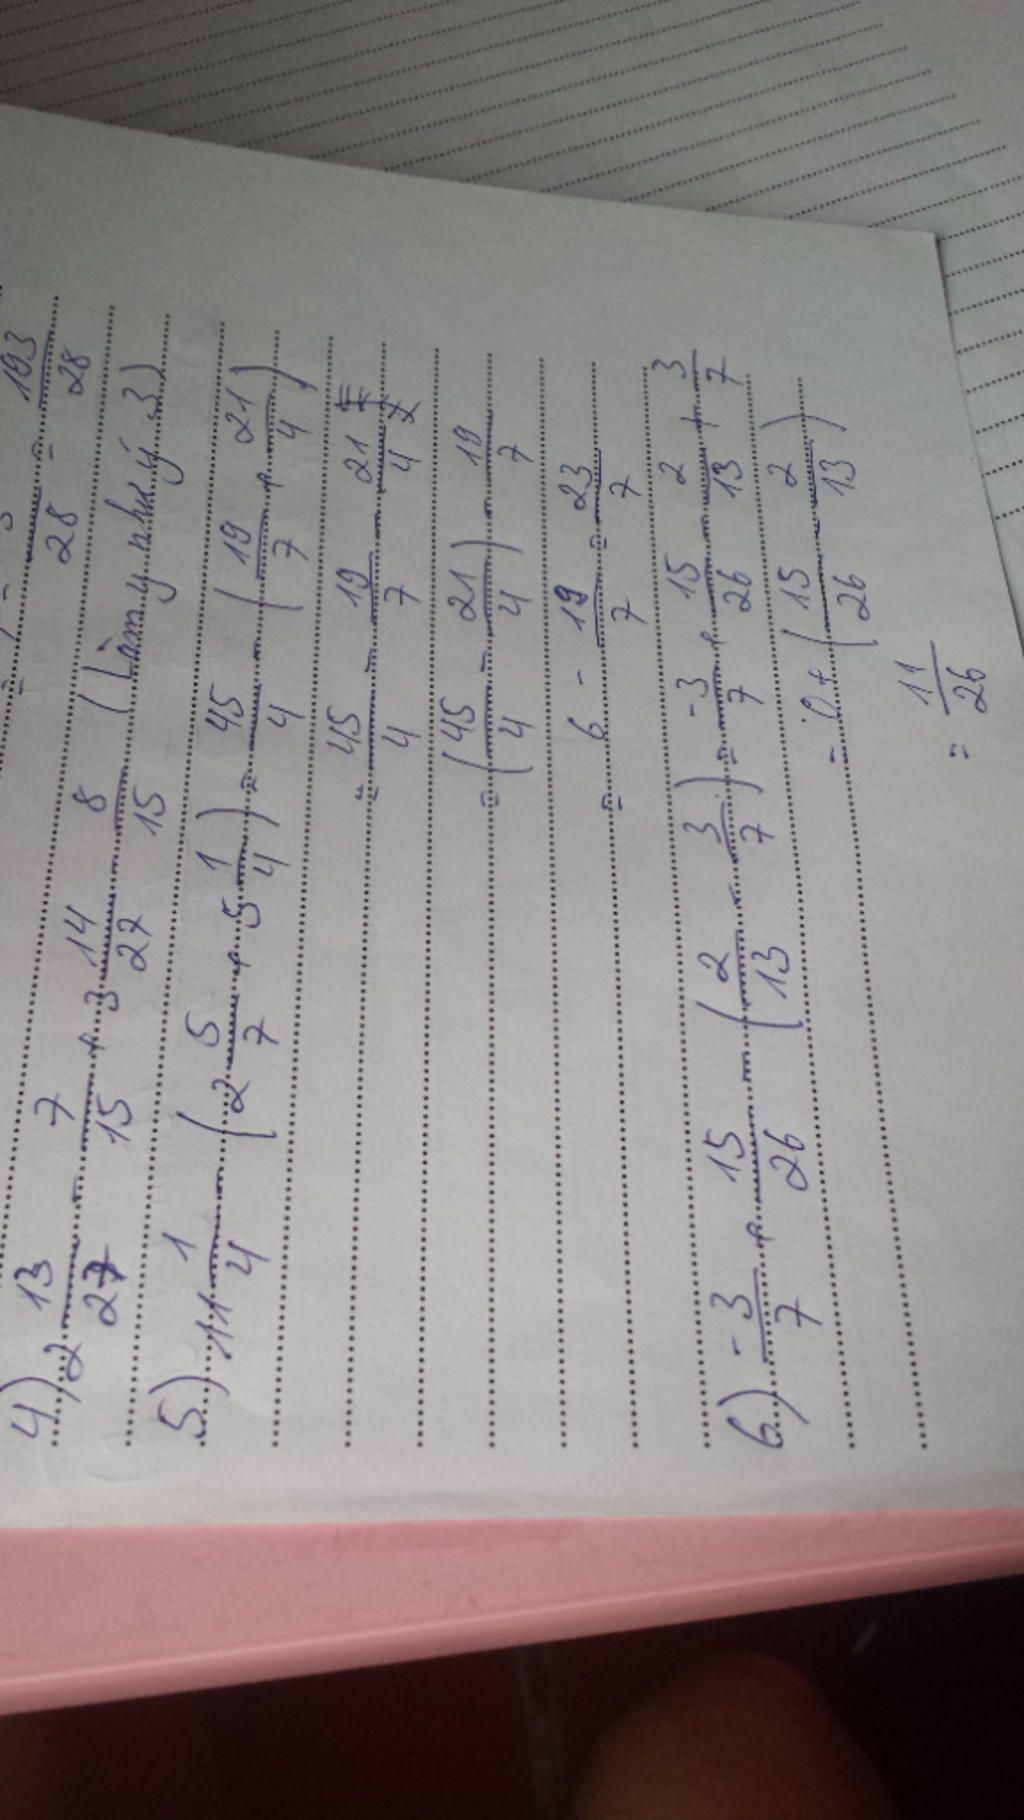 = 193/28
28
4) 2 13/27 - 7/15 + 3 14/27 - 8/15 (Làm như ý 3)
5) 11 1/4 - (2 5/7 + 5 1/4) = 45/4 - (19/7 + 21/4)
= 45/4 - 19/7 - 21/4
= (45/4 - 21/4) - 19/7
= 6 - 19/7 = 23/7
6) -3/7 + 15/26 - (2/13 - 3/7) = -3/7 + 15/26 - 2/13 + 3/7
= 0 + (15/26 - 2/13)
= 11/26